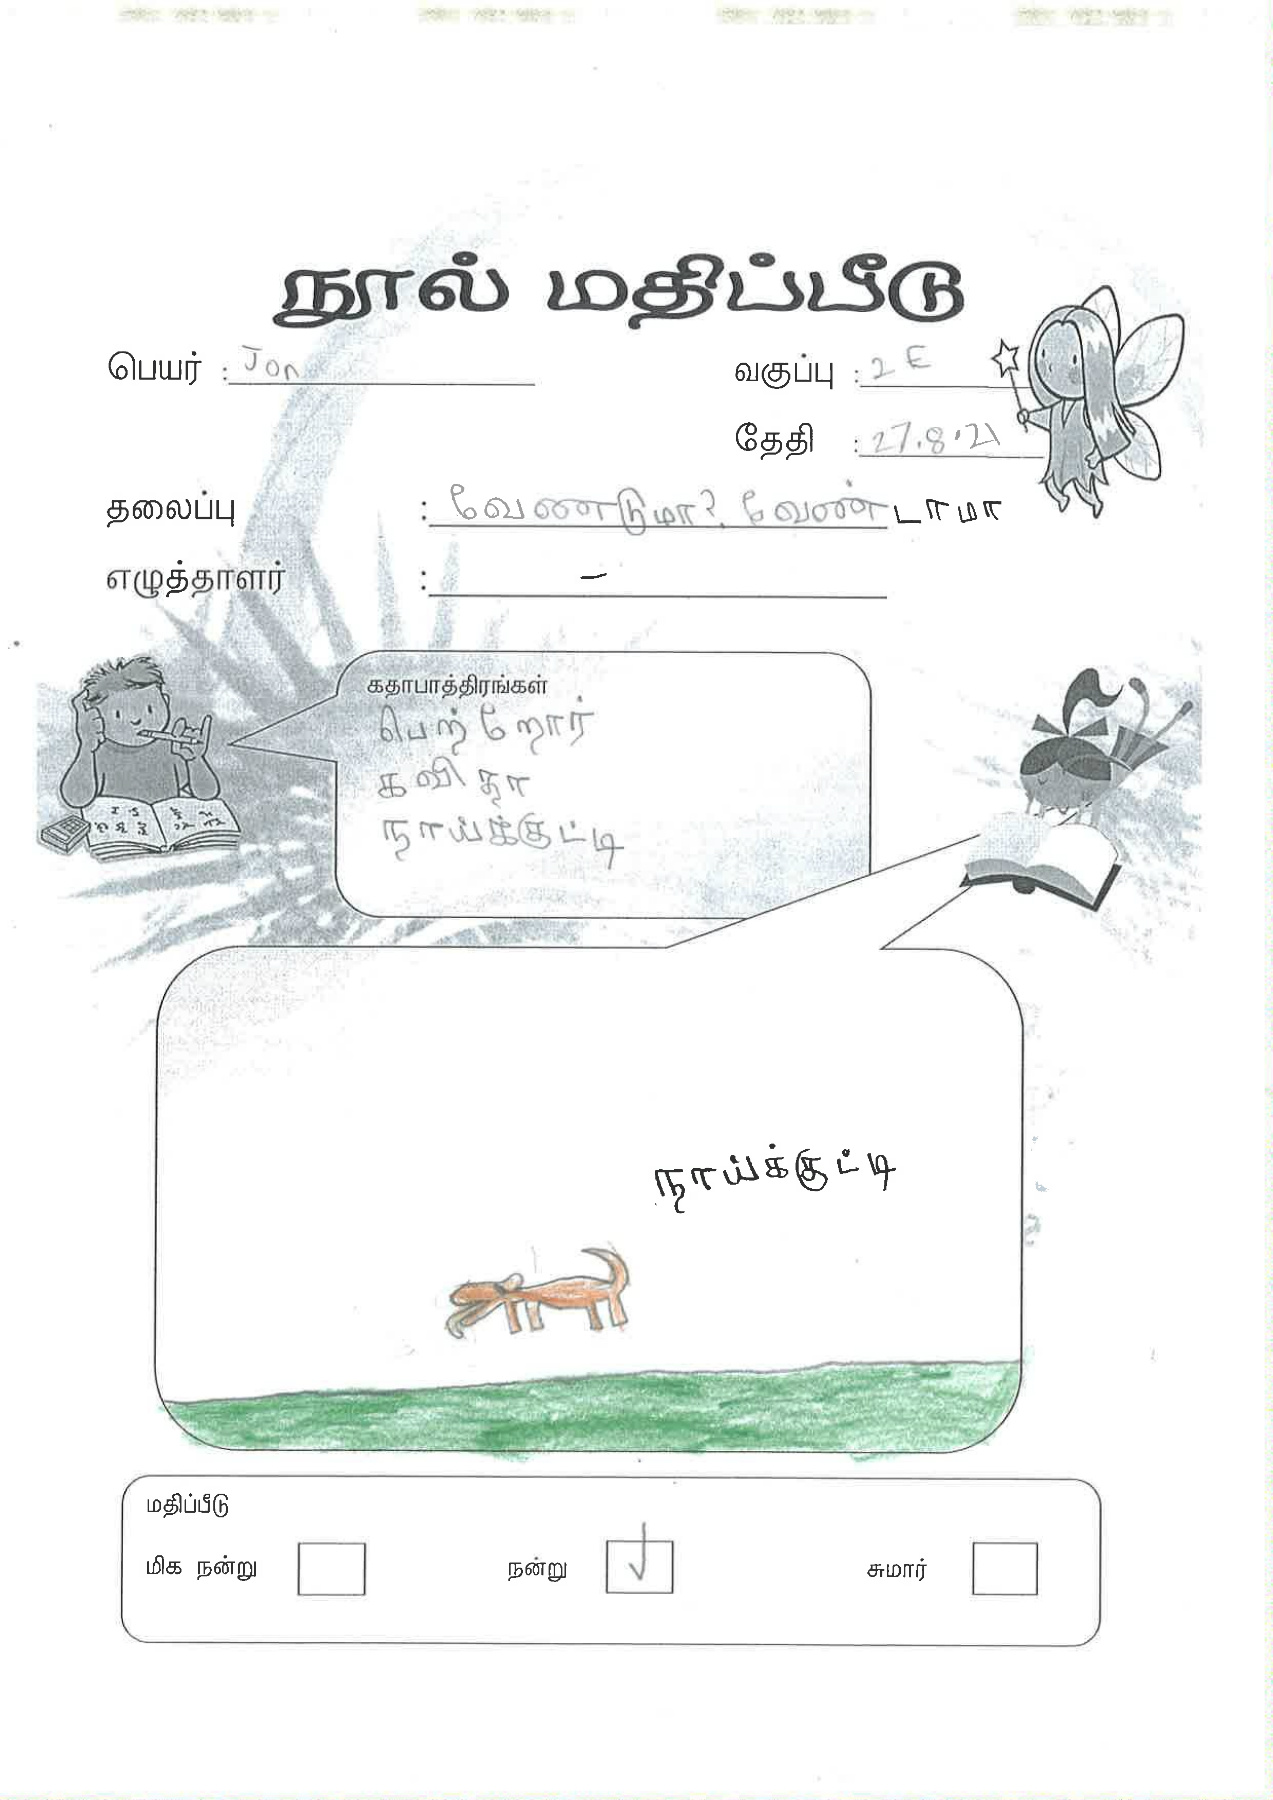 நூல் மதிப்பீடு
பெயர் : Jon வகுப்பு : 2 E
தேதி : 27.8.21
தலைப்பு : வேணடுமா? வேண்டாமா
எழுத்தாளர் : –
கதாபாத்திரங்கள்
பெற்றோர்
கவிதா
நாய்க்குட்டி
நாய்க்குட்டி
மதிப்பீடு
மிக நன்று நன்று சுமார்